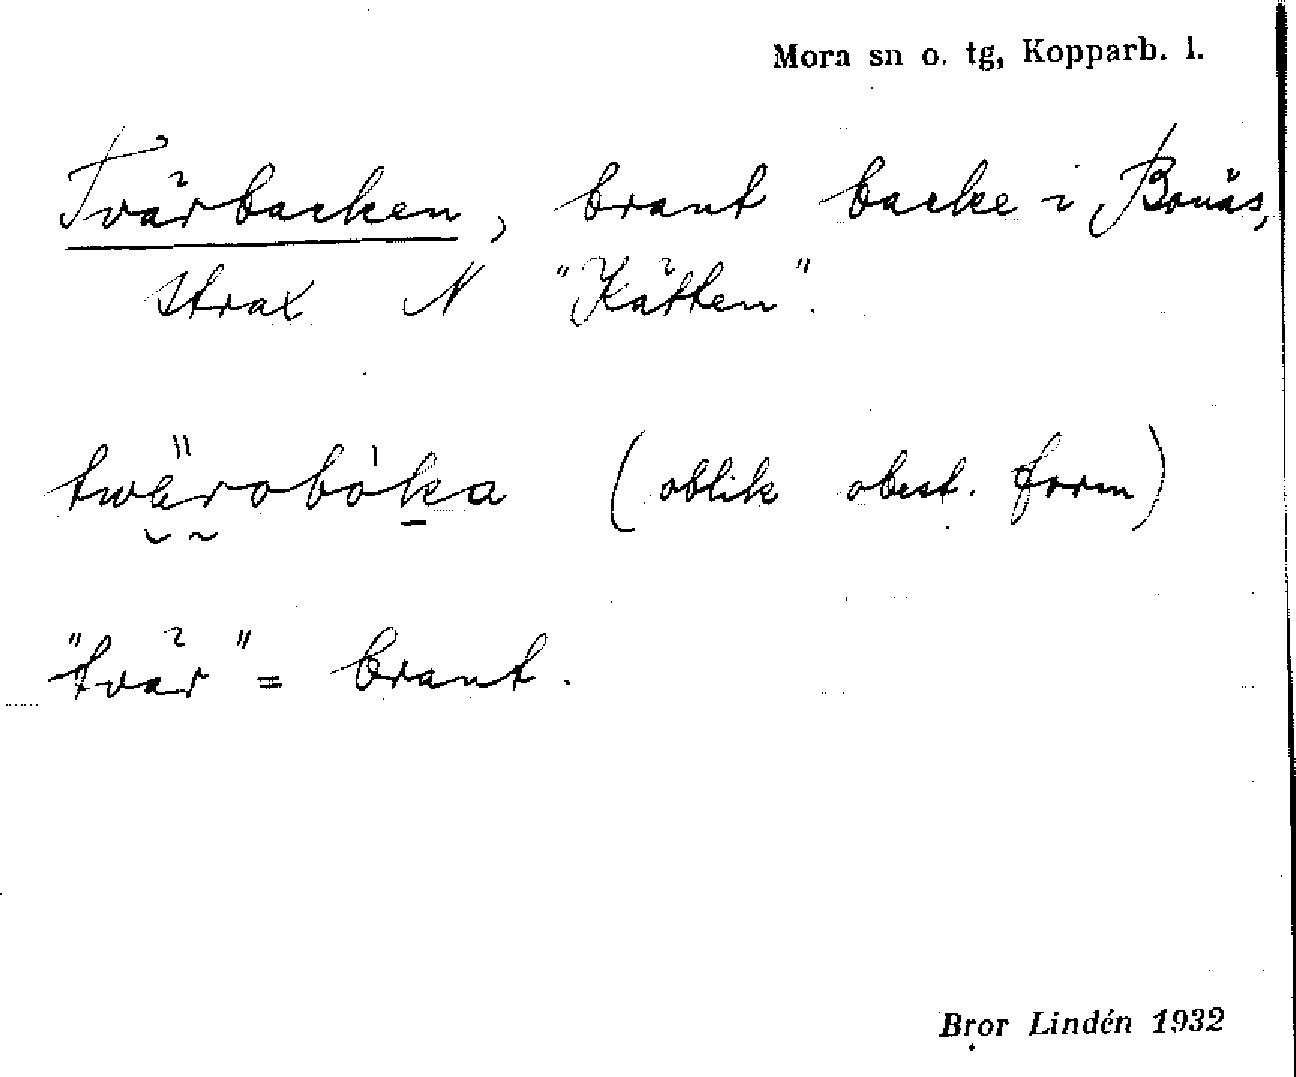 Mora sn o. tg, Kopparb. l.
Tvärbacken, brant backe i Bonäs,
strax N "Kätten".
twärobòka (oblik obest. form)
"tvär" = brant.
Bror Lindén 1932